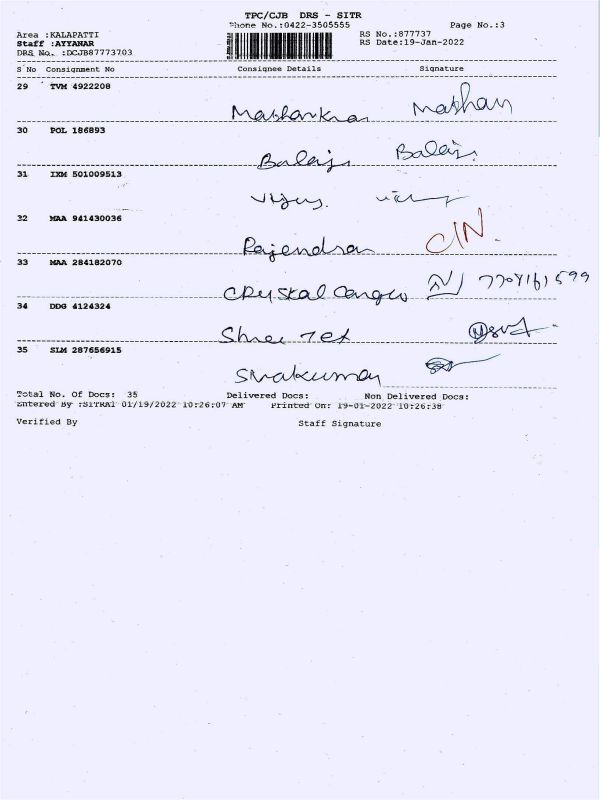 TPC/CJB DRS - SITR
Phone No.:0422-3505555 Page No.:3
Area :KALAPATTI RS No.:877737
Staff :AYYANAR RS Date:19-Jan-2022
DRS No. :DCJB87773703
S No Consignment No Consignee Details Signature
29 TVM 4922208
30 POL 186893
Balaji Balaji
31 IXM 501009513
Vijay.
32 MAA 941430036
Rajendran
33 MAA 284182070
Crystal 
34 DDG 4124324
Shree Tex
35 SLM 287656915
Sivakumar
Total No. Of Docs: 35 Delivered Docs: Non Delivered Docs:
Entered By :SITRA1 01/19/2022 10:26:07 AM Printed On: 19-01-2022 10:26:38
Verified By Staff Signature